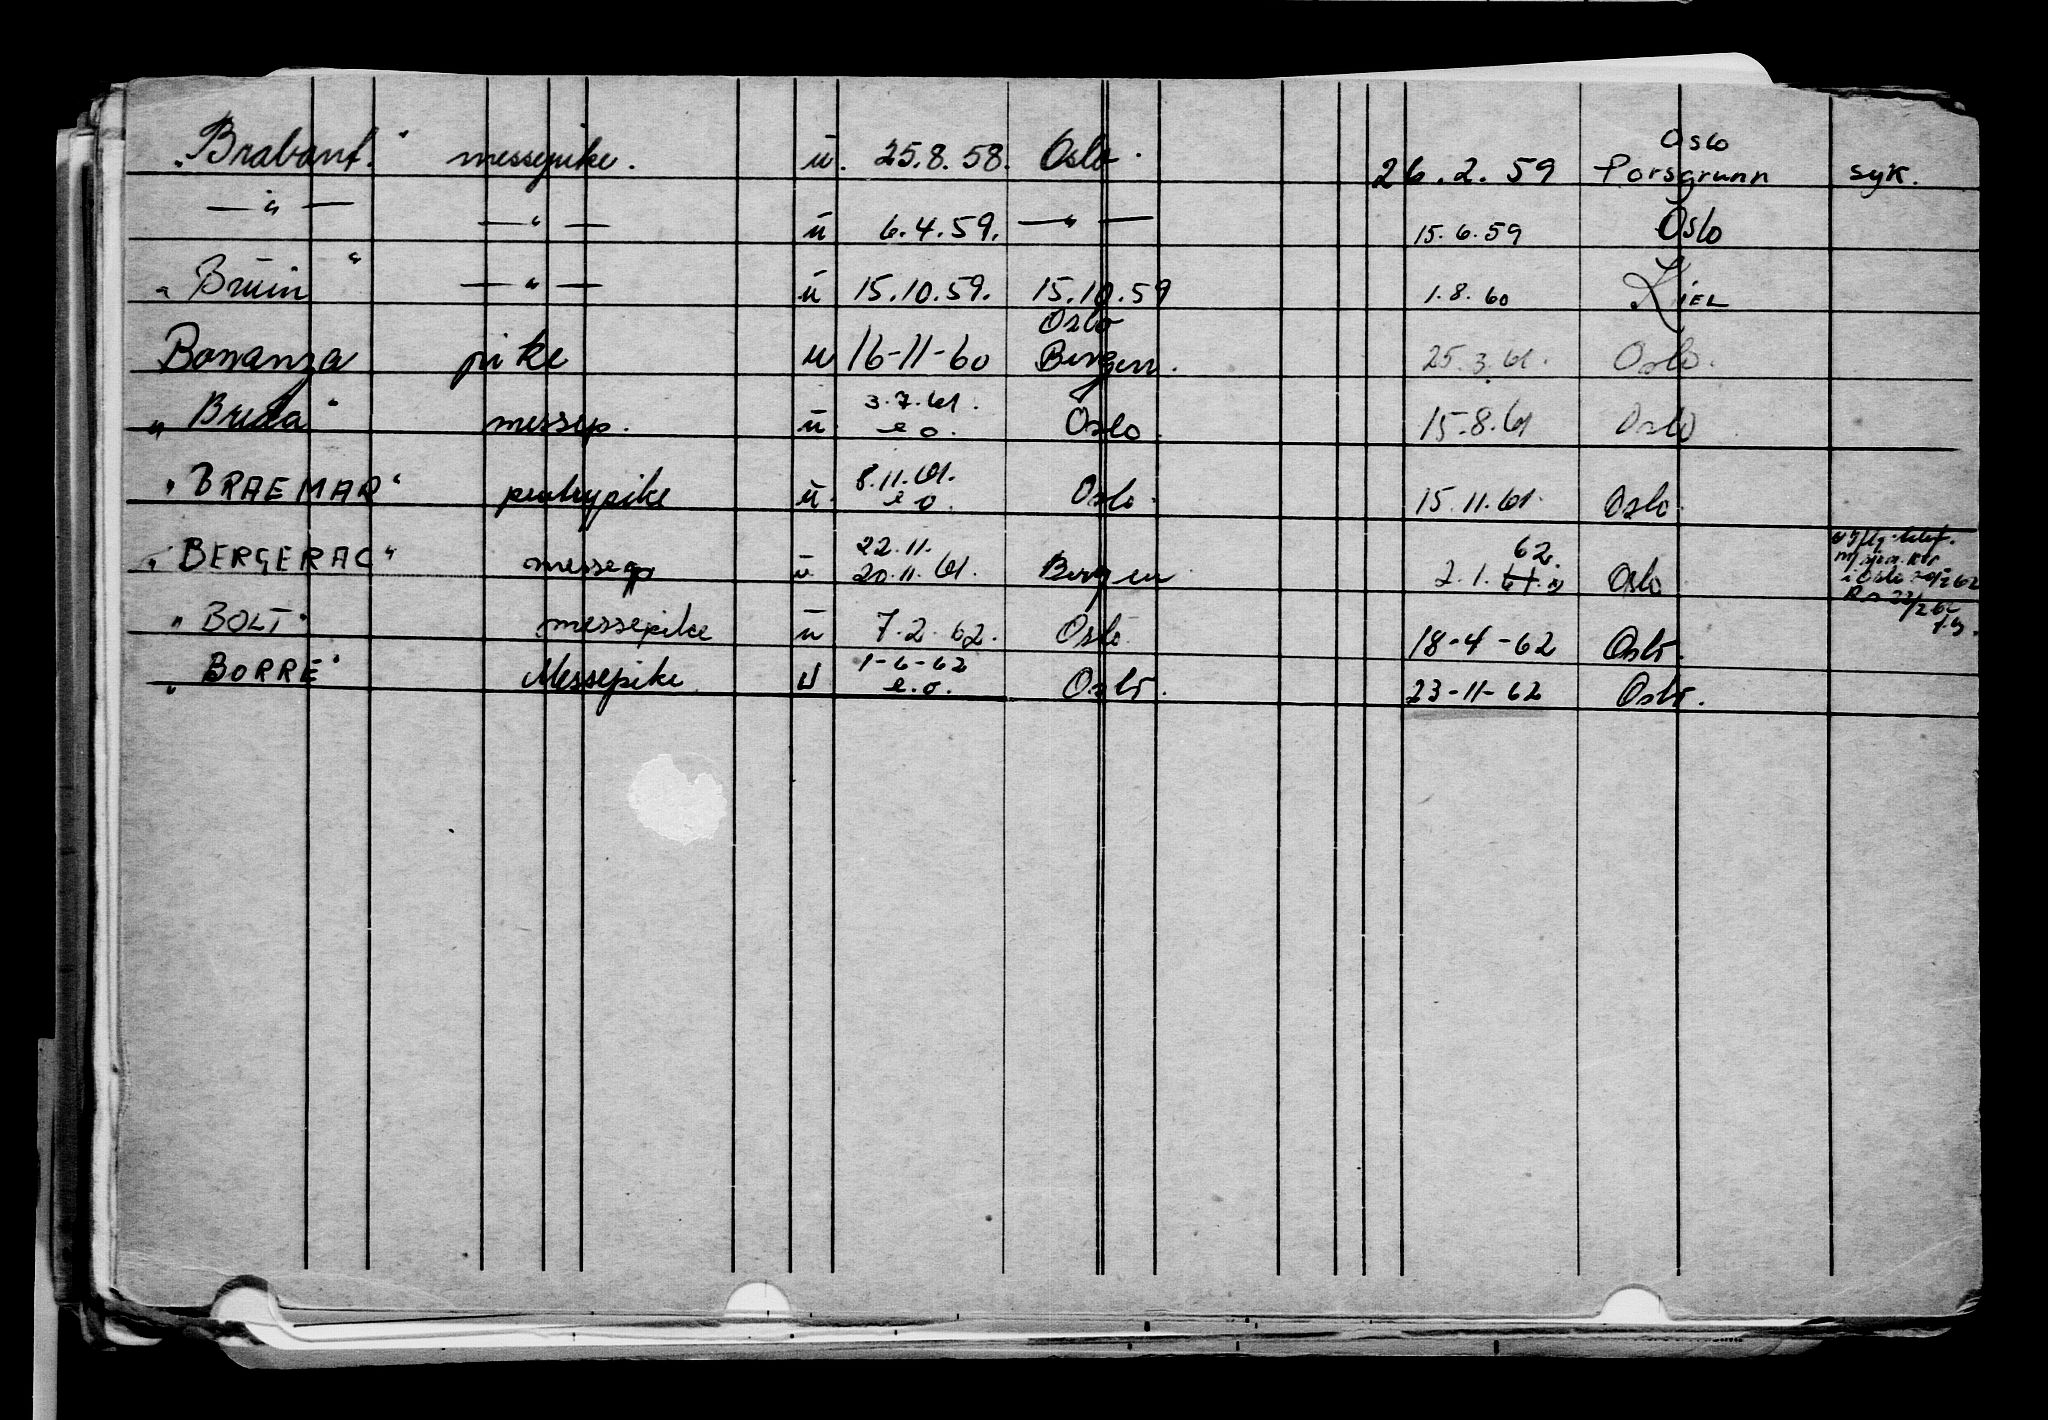 Oslo
"Brabant." messepike. u. 25.8.58. Oslo. 26.2.59 Porsgrunn syk.
— " — — " — u 6.4.59. — " — 15.6.59 Oslo
"Bruin" — " — u 15.10.59. 15.10.59 1.8.60 Kiel
Oslo
Bonanza pike u 16-11-60 Bergen. 25.3.61. Oslo.
3.7.61.
"Breda" messep. u e o. Oslo. 15.8.61 Oslo
8.11.61.
"BRAEMAR" pentrypike u. e o. Oslo. 15.11.61. Oslo.
22.11. 62.
"BERGERAC" messep u 20.11.61. Bergen 2.1. Oslo
"BOLT" messepike u 7.2.62. Oslo. 18-4-62 Oslo.
1-6-62
"BORRE" Messepike u e.o. Oslo. 23-11-62 Oslo.